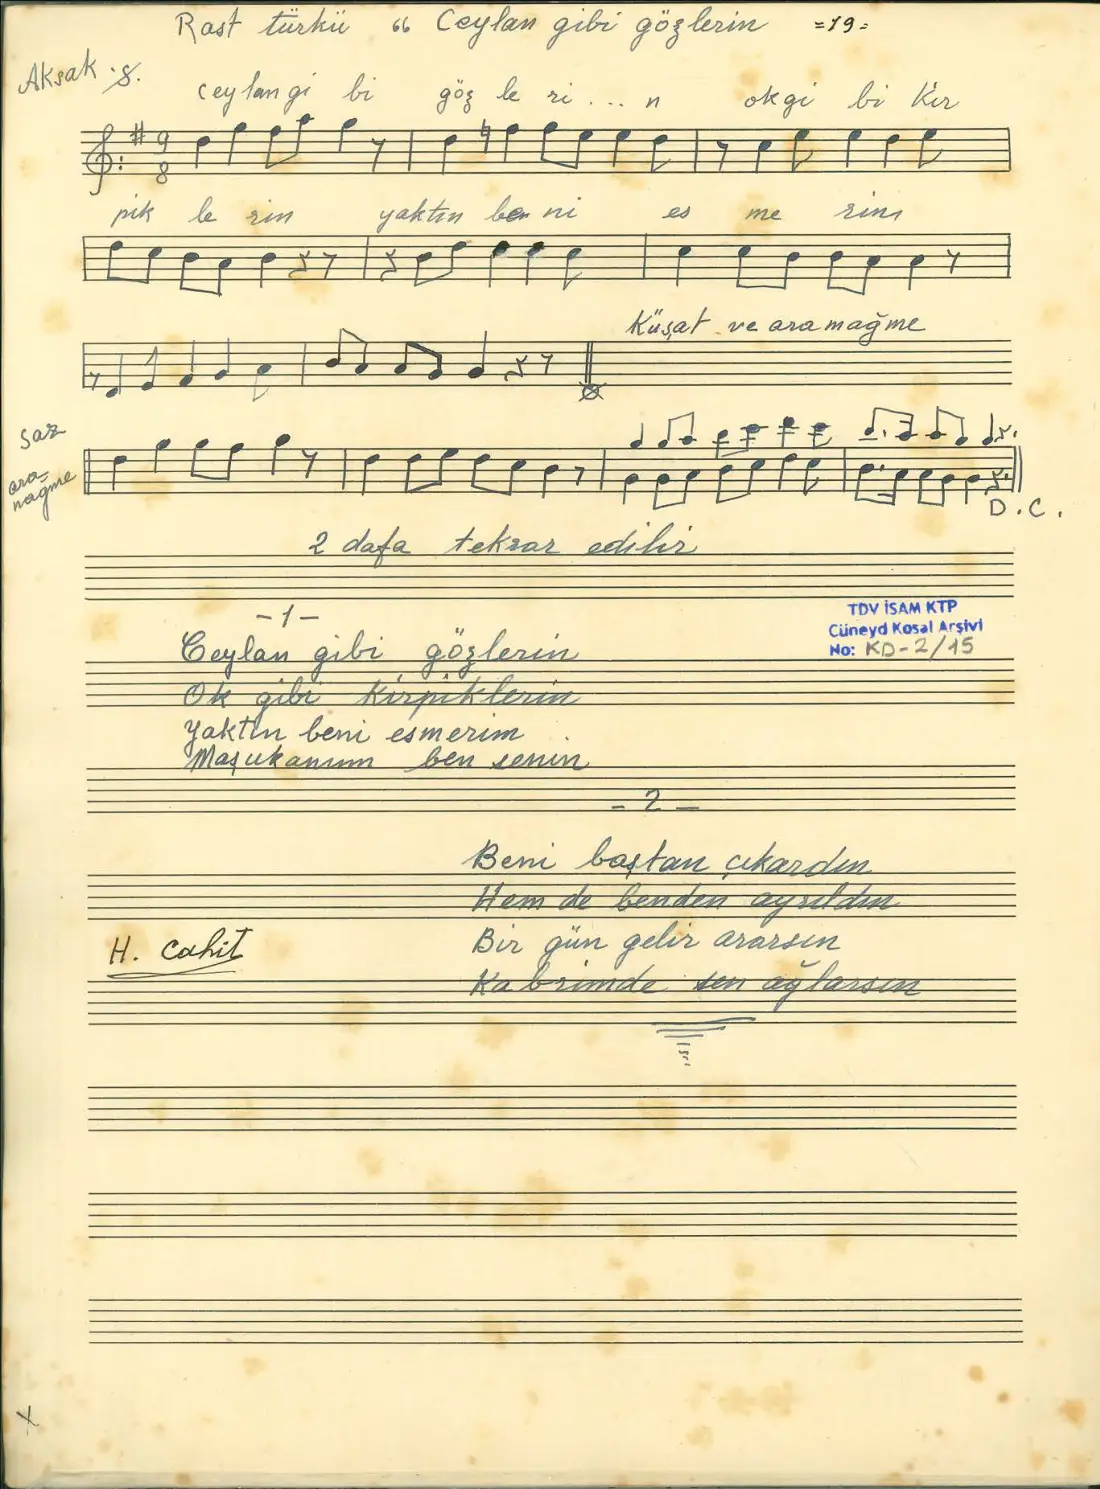 Rast türkü " Ceylan gibi gözlerin =19=
Aksak 8.
ceylan gi bi göz le ri . . . n ok gi bi Kir
9
8
pik le rin yaktın be ni es me rim
Küşat ve aranağme
Saz
ara-
nağme
D.C.
2 dafa tekrar edilir
-1-
Ceylan gibi gözlerin
Ok gibi kirpiklerin
Yaktın beni esmerim
Maşukanım ben senin
TDV İSAM KTP
Cüneyd Kosal Arşivi
No: KD-2/15
- 2 -
Beni baştan çıkardın
Hem de benden ayrıldın
Bir gün gelir ararsın
Kabrimde sen ağlarsın
H. Cahit
x